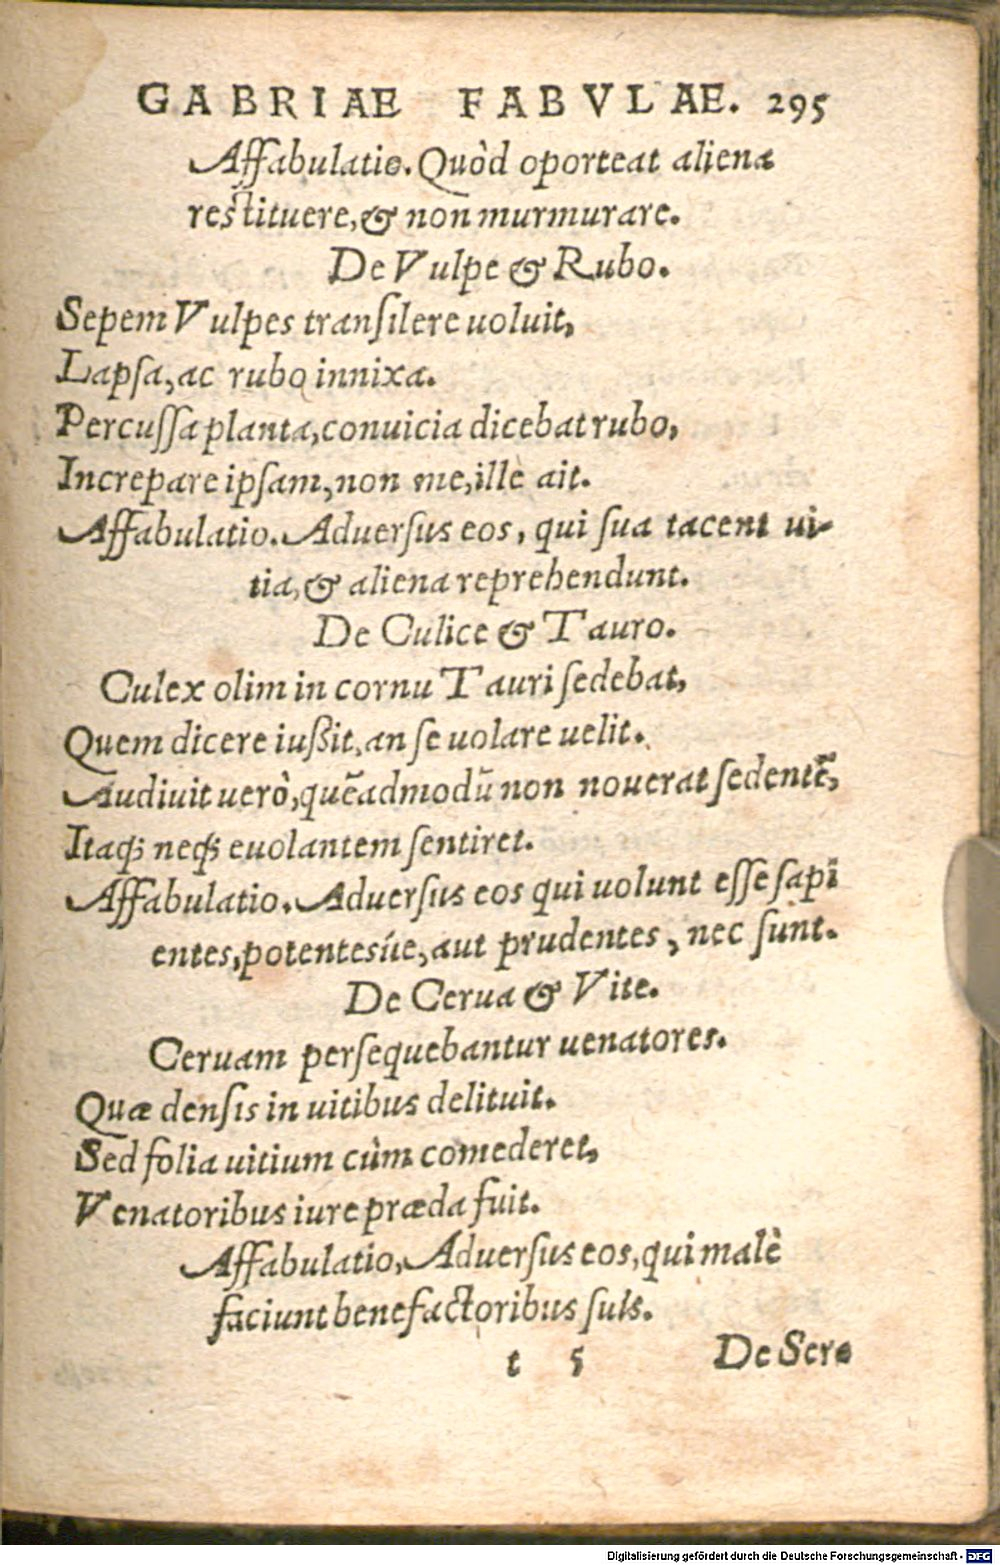 GABRIAE FABVLAE. 295
Affabulatio. Quòd oporteat aliena
restituere, & non murmurare.
De Vulpe & Rubo.
Sepem Vulpes transilere uoluit,
Lapsa, ac rubo innixa.
Percussa planta, conuicia dicebat rubo,
Increpare ipsam, non me, ille ait.
Affabulatio. Aduersus eos, qui sua tacent ui-
tia, & aliena reprehendunt.
De Culice & Tauro.
Culex olim in cornu Tauri sedebat,
Quem dicere iußit, an se uolare uelit.
Audiuit uerò, quẽadmodũ non nouerat sedentẽ,
Itaq; neq; euolantem sentiret.
Affabulatio. Aduersus eos qui uolunt esse sapi
entes, potentesúe, aut prudentes, nec sunt.
De Cerua & Vite.
Ceruam persequebantur uenatores.
Quæ densis in uitibus delituit.
Sed folia uitium cùm comederet,
Venatoribus iure præda fuit.
Affabulatio, Aduersus eos, qui malè
faciunt benefactoribus suis.
t 5 De Sere
Digitalisierung gefördert durch die Deutsche Forschungsgemeinschaft - DFG